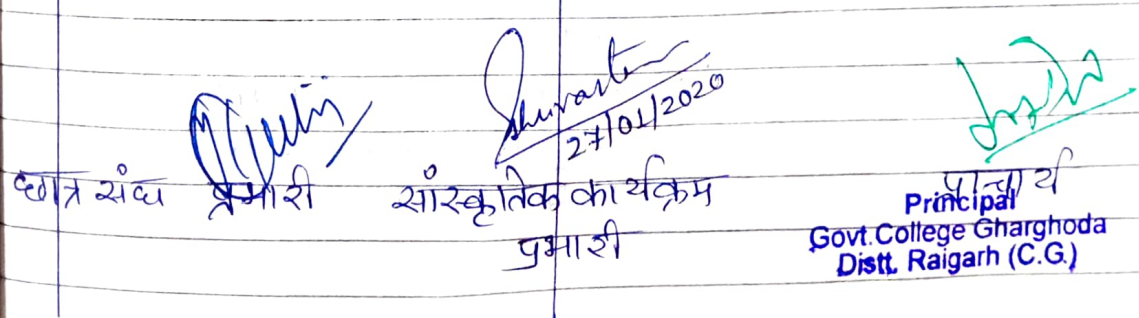 27/01/2020
छात्र संघ प्रभारी सांस्कृतिक कार्यक्रम प्राचार्य
प्रभारी
Principal
Govt. College Gharghoda
Distt. Raigarh (C.G.)